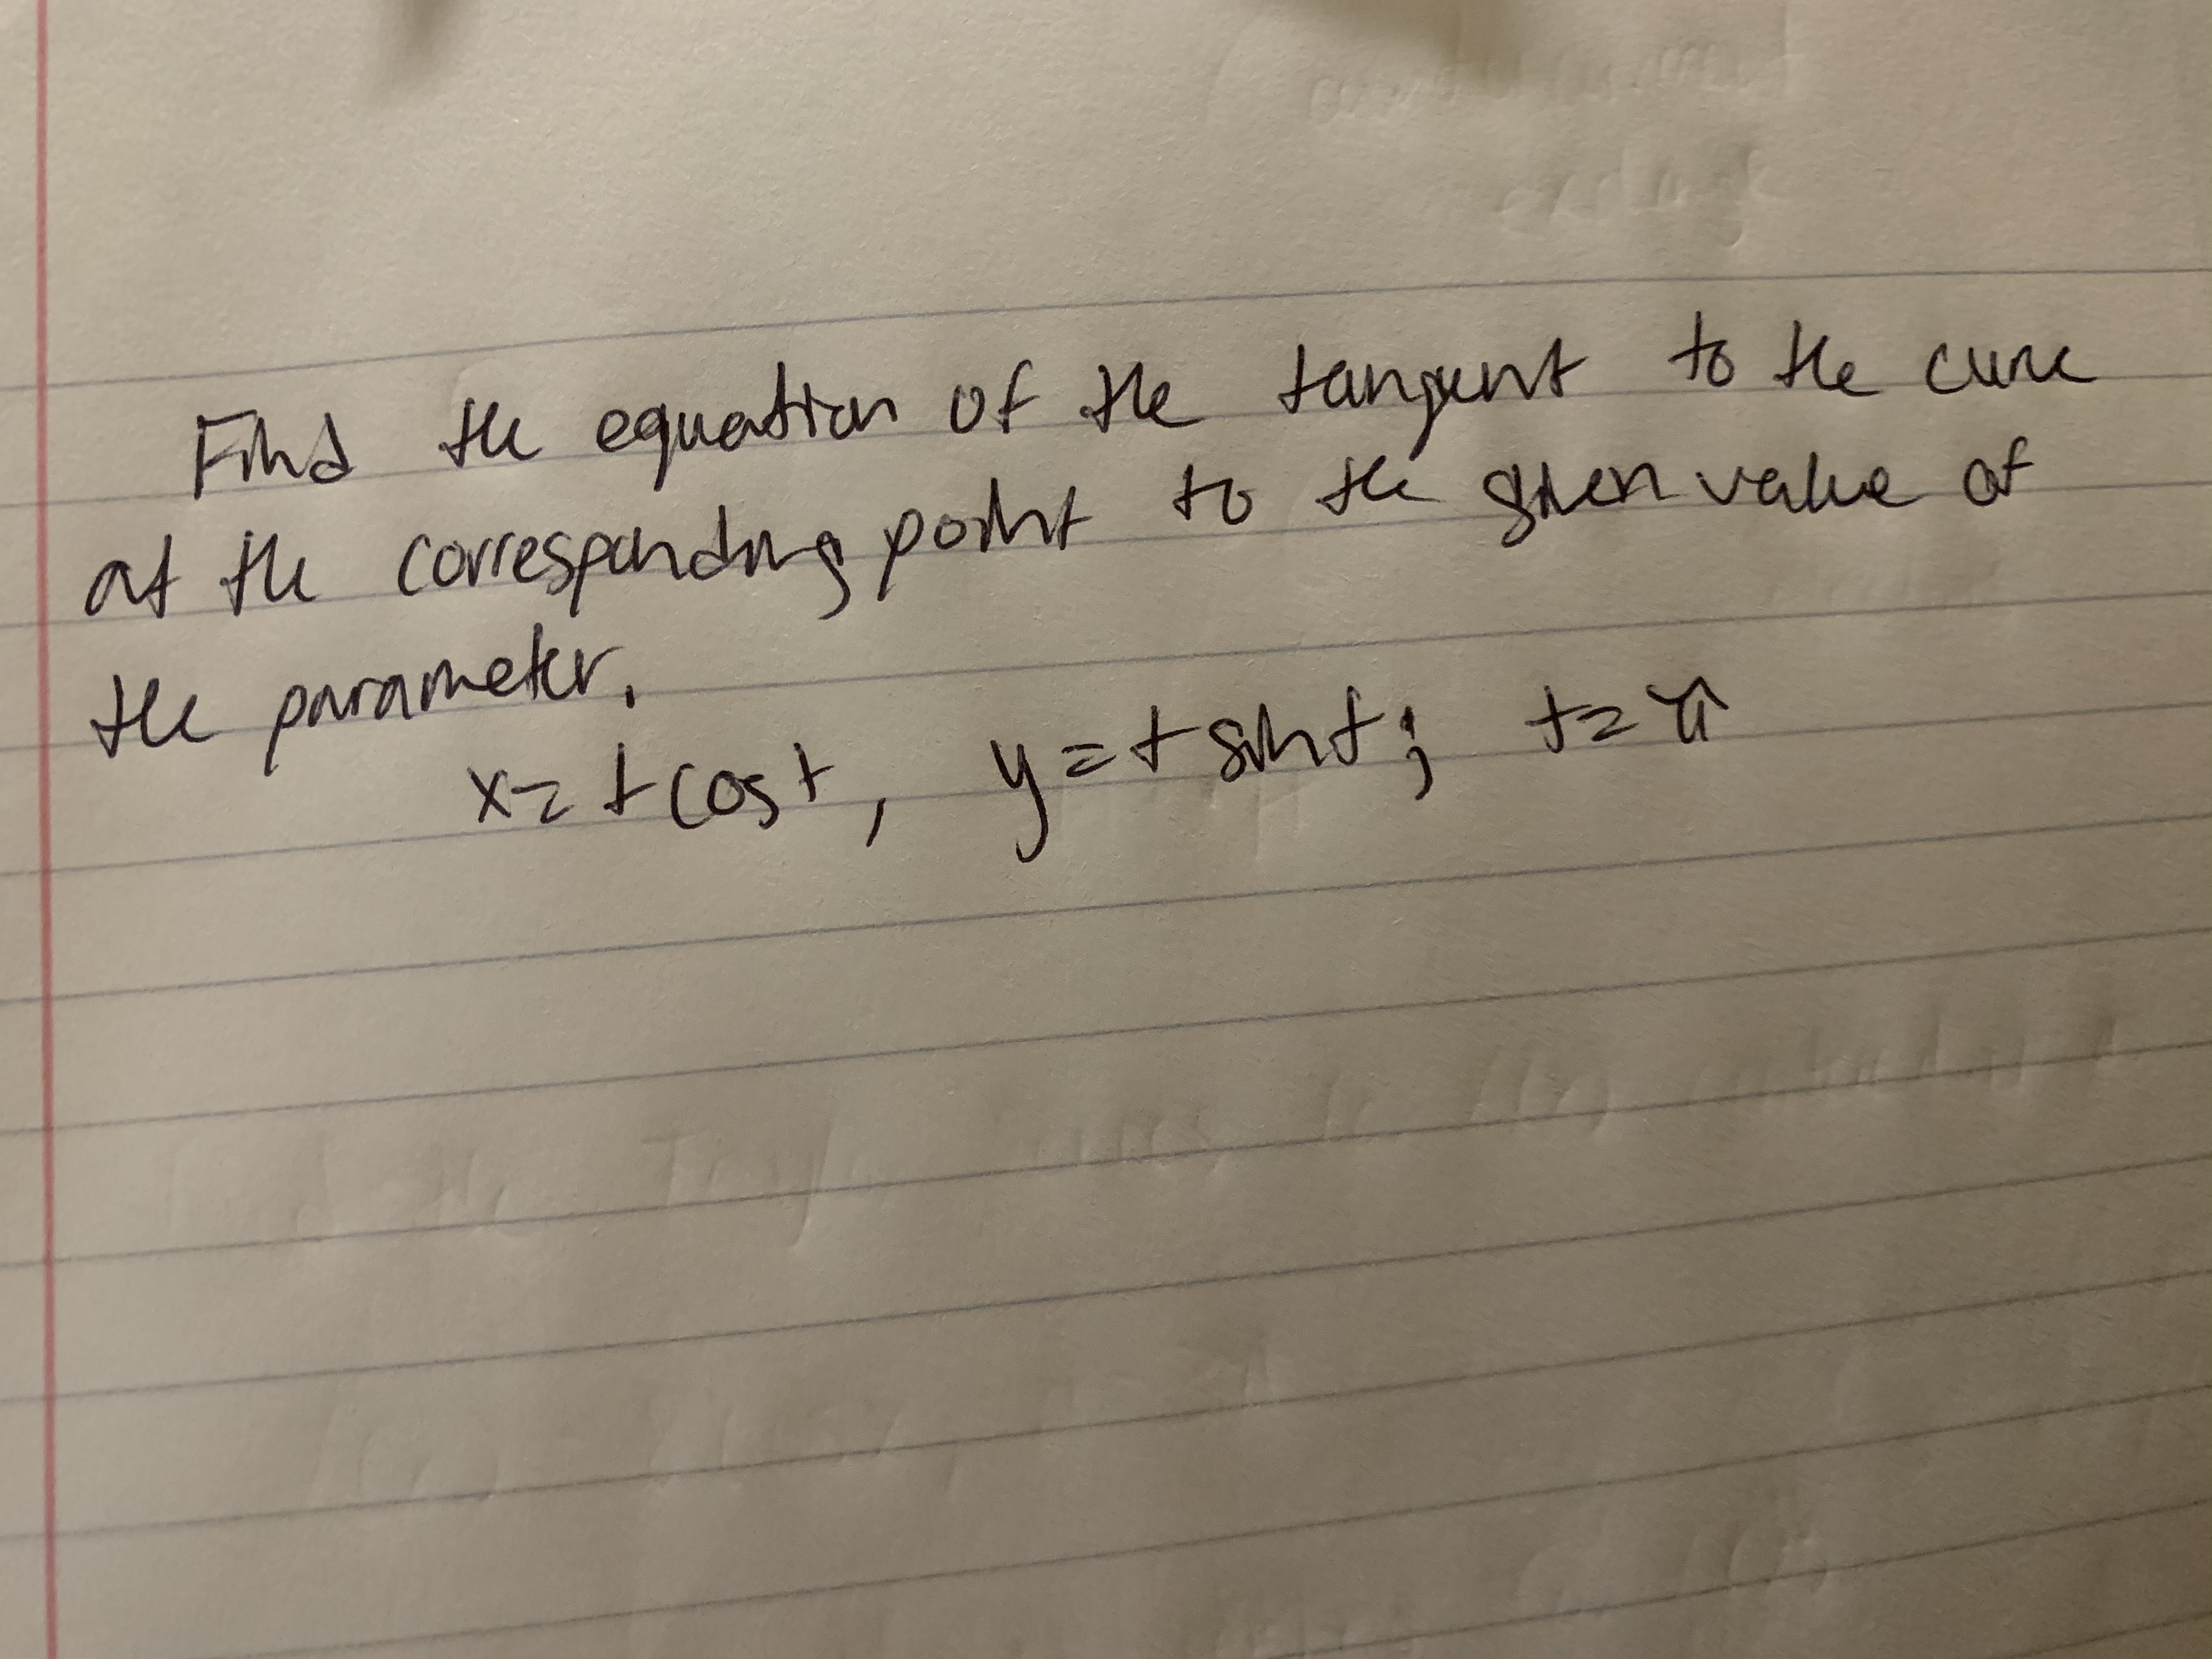 Find the equation of the tangent to the curve
at the corresponding point to the given value of
the parameter.
x = t cos t , y = t sin t ; t = π